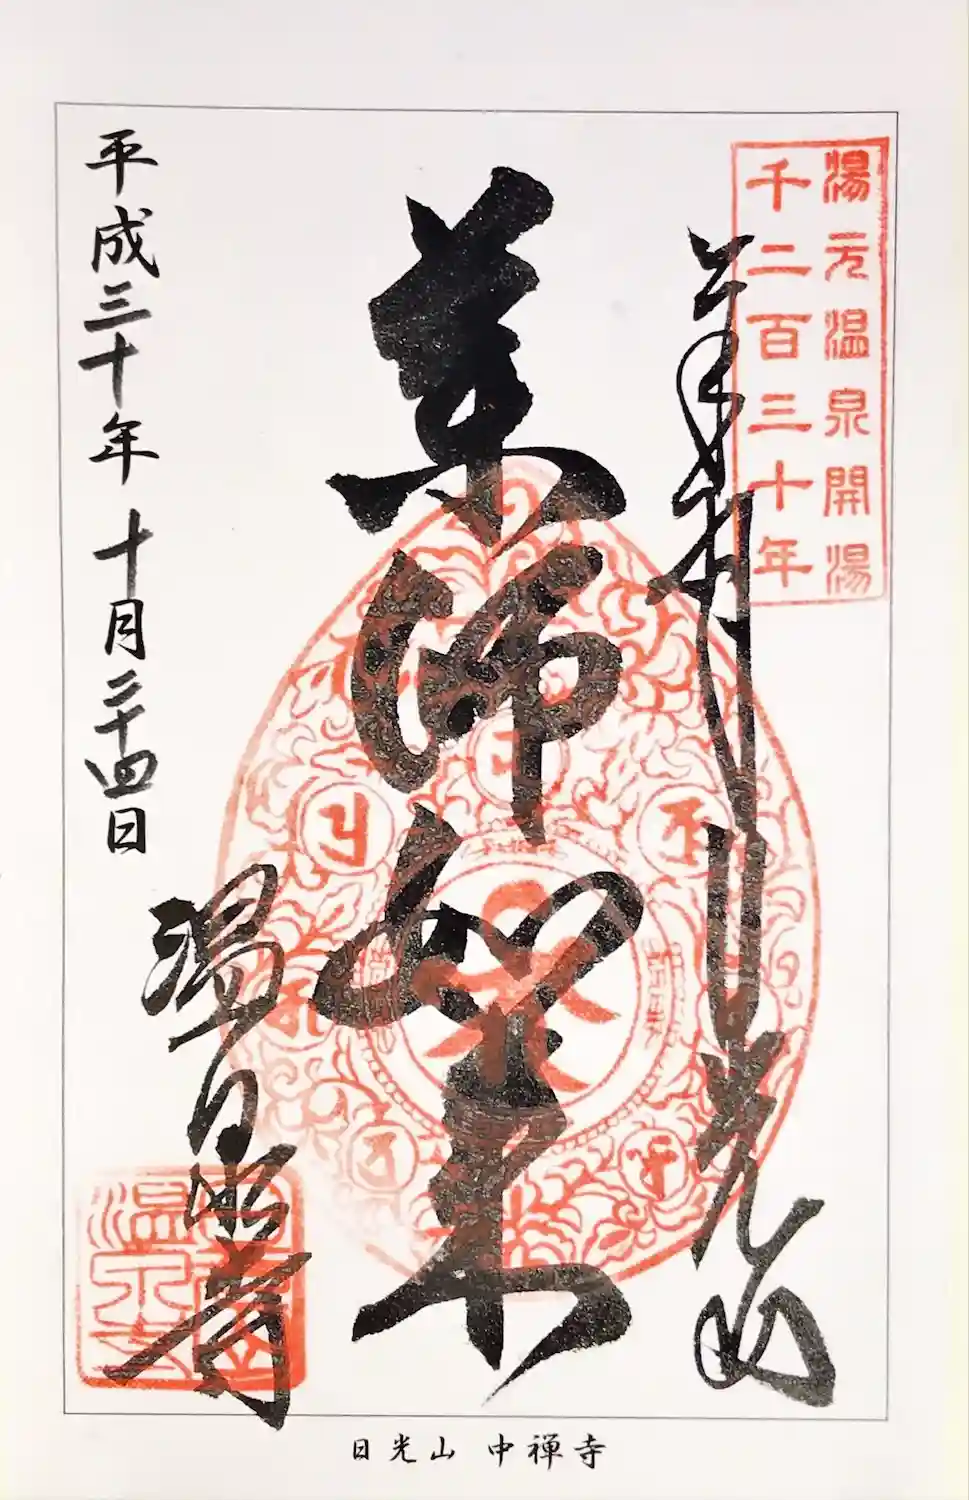 湯元温泉開湯
千二百三十年
奉拝 日光山
薬師如来
平成三十年 十月二十四日
温泉寺
日光山 中禅寺